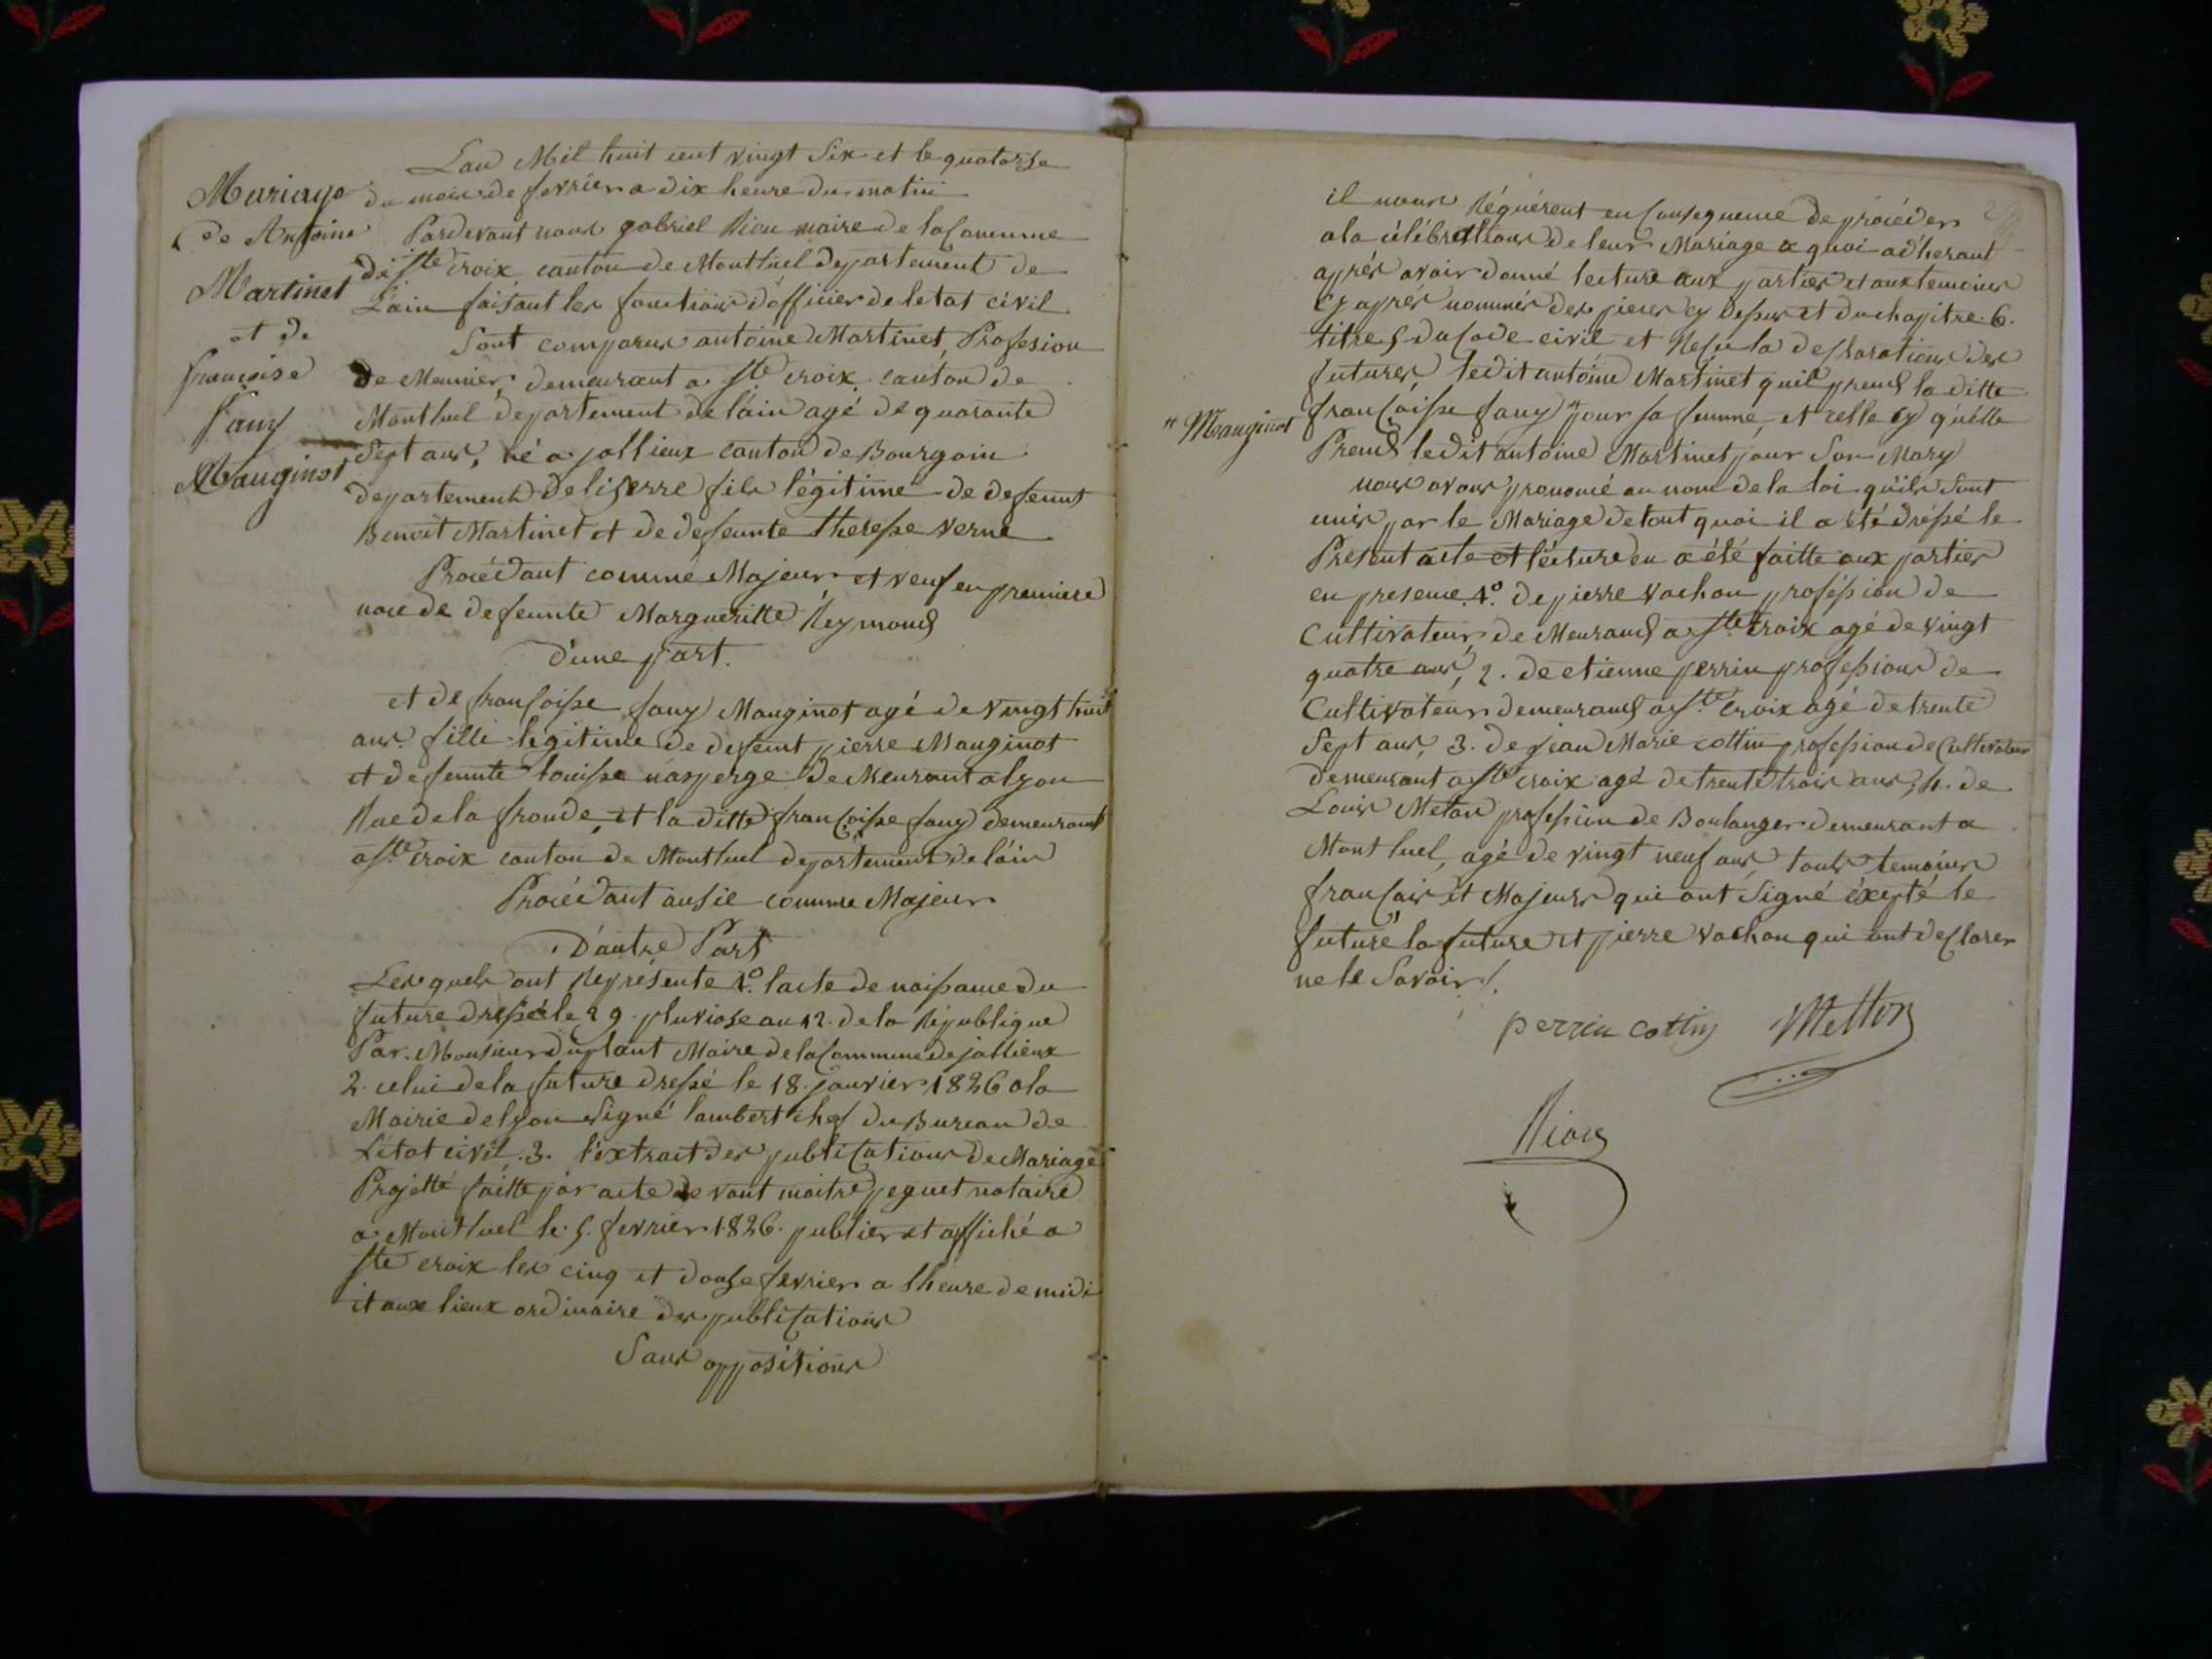 Mariage
de Antoine
Martinet
et de
francoise
fany
Mauginot
Lan Mil huit cent vingt Six et le quatorse
du mois de fevrier a dix heure du matin
Pardevant nous gabriel Rieu maire de la Commune
de Ste croix canton de Montluel departement de
L'ain faisant les fonctions d'officier de letat civil
Sont comparus antoine Martinet, Profesion
de Meunier, demeurant a Ste croix canton de
Montluel departement de l'ain agé de quarante
Sept ans, né a jallieux canton de Bourgoin
departement deliserre fils légitime de defeunt
Benoit Martinet et de defeunte theresse verne
Procédant comme Majeur et veuf en premiere
noce de defeunte Margueritte Reymond
d'une part.
et de francoisse fany Mauginot agé de vingt huit
ans. fille légitime de defeunt pierre Mauginot
et defeunte louisse nasperge demeurant a lyon
Rue de la fronde, et la ditte francoisse fany demeurant
a Ste croix canton de Montluel departement de l'ain
Procédant ausie comme Majeur
D'autre Part
Les quels ont Représente 1º. lacte de naissance du
future dressé le 29 pluviose an 12. de la République
Par Monsieur duplant Maire de la Commune de jallieux
2. celui de la future dressé le 18. janvier 1826 a la
Mairie de lyon Signé lambert chef du Bureau de
L'état civil. 3. l'extrait des publications de Mariage
Projetté faitte par acte devant maitre peguet notaire
a Montluel le 5. fevrier 1826. publier et affiché a
Ste croix les cinq et douse fevrier a lheure de midi
et aux lieux ordinaire des publications
Sans oppositions
il nous Réquérent en Consequence de procéder
a la célébrations de leur Mariage a quoi adherant
aprés avoir donné lecture aux parties et aux temoins
Cy aprés nommés des pieces cy dessus et du chapitre. 6.
titre 5 du Code civil et Resu la desclarations des
futures, ledit antoine Martinet quil prend la ditte
francoisse fany " pour sa femme, et celle cy qu'elle
" Mauginot
Prend ledit antoine Martinet pour Son Mary
nous avons prononcé au nom de la loi quils Sont
unis par le Mariage de tout quoi il a été dréssé le
Present acte et lecture en a été faitte aux parties
en presence. 1º. de pierre vachon proféssion de
Cultivateur, demeurand a Ste Croix agé de vingt
quatre ans, 2. de etienne perrin professions de
Cultivateur demeurand a Ste croix agé de trente
Sept ans, 3. de jean Marie cottin profession de Cultivateur
demeurant a Ste croix agé de trente trois ans, 4. de
Louis Meton profession de Boulanger demeurant a
Montluel, agé de vingt neuf ans, touts temoins
francais et Majeurs qui ont Signé éxepté le
future la future et pierre vachon qui ont desclarer
ne le Savoir /.
perrin cottin Metton
Rieu